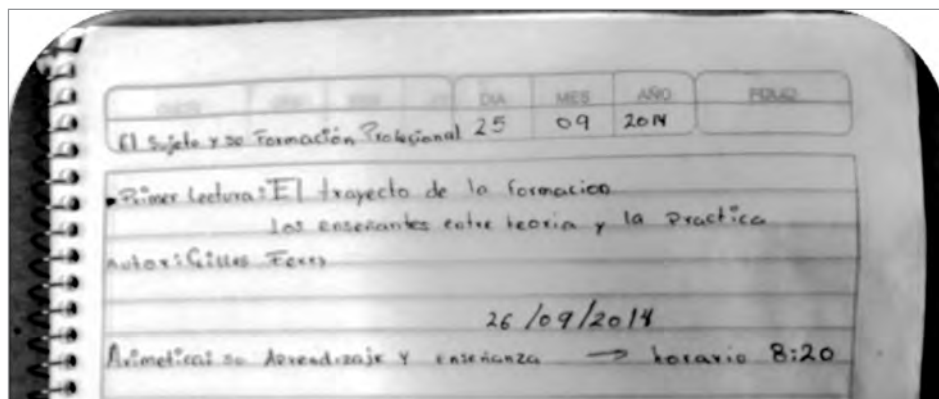 DIA MES AÑO
El Sujeto y so Formación Profesional 25 09 2014
Primer Lectura: El trayecto de la formacion
los enseñantes entre teoria y la Practica
Autor: Gilles Ferry
26/09/2014
Arimetica: so Aprendizaje y enseñanza → horario 8:20